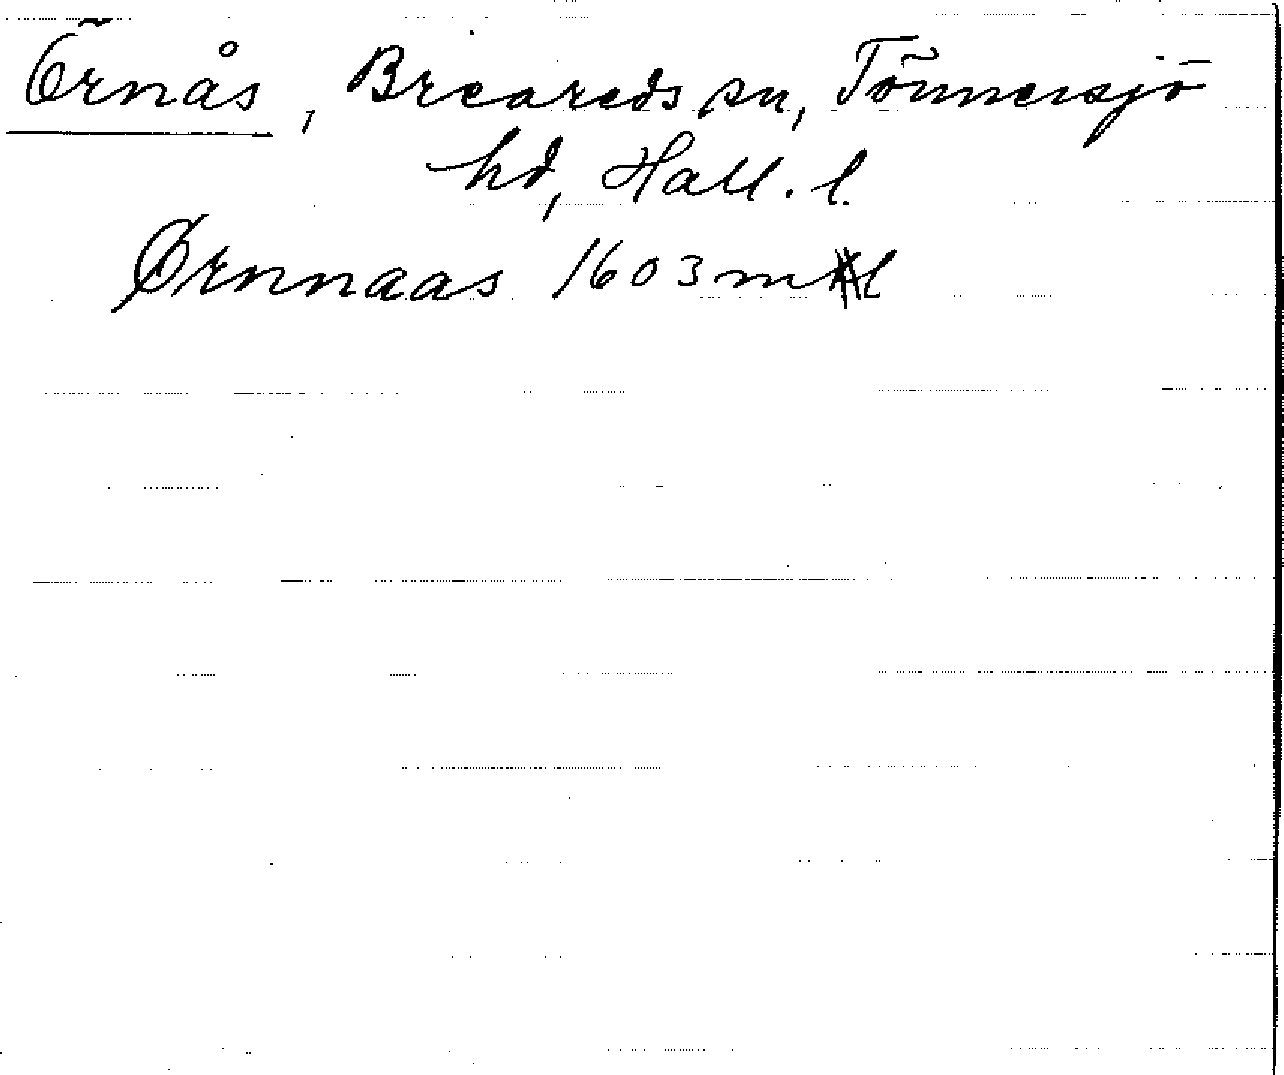 Örnås, Breareds sn, Tönnersjö
hd, Hall. l.
Ørnnaas 1603 m l